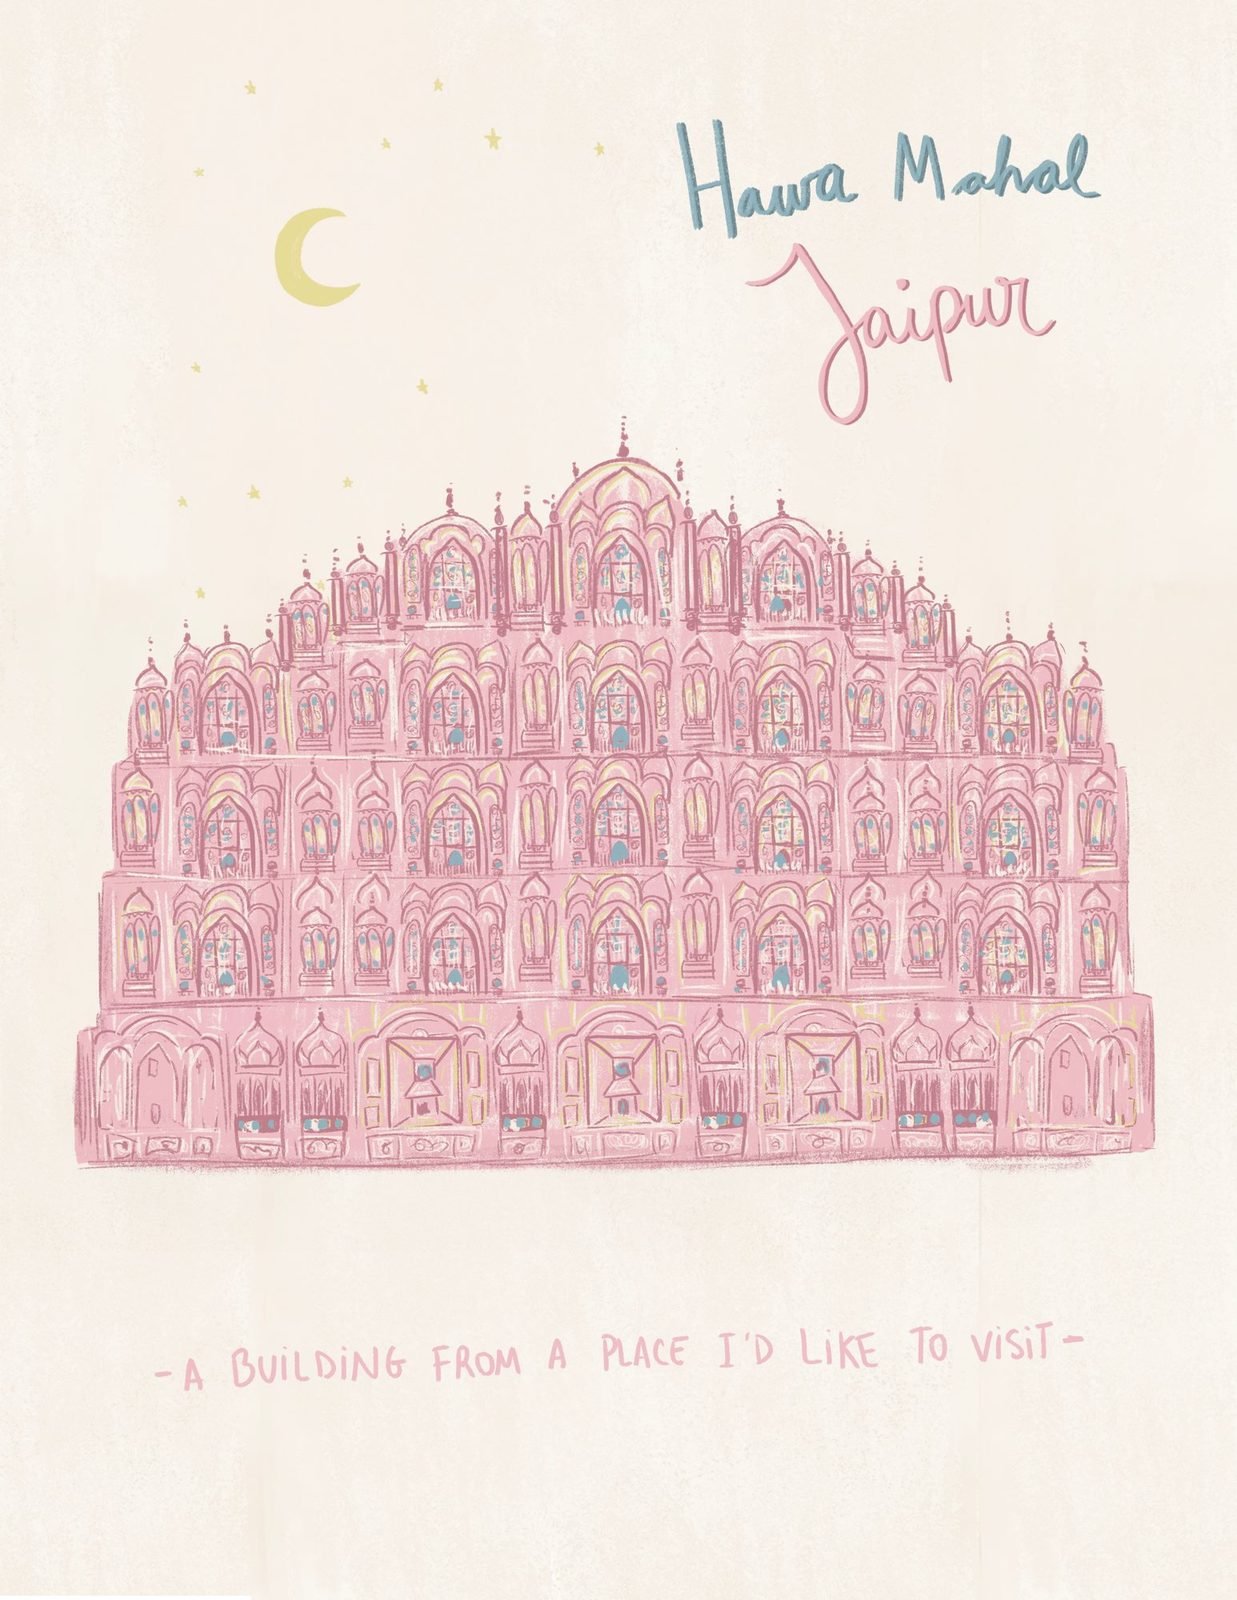 Hawa Mahal
Jaipur
- A BUiLDiNG FROM A PLACE I'D LiKE TO ViSiT -